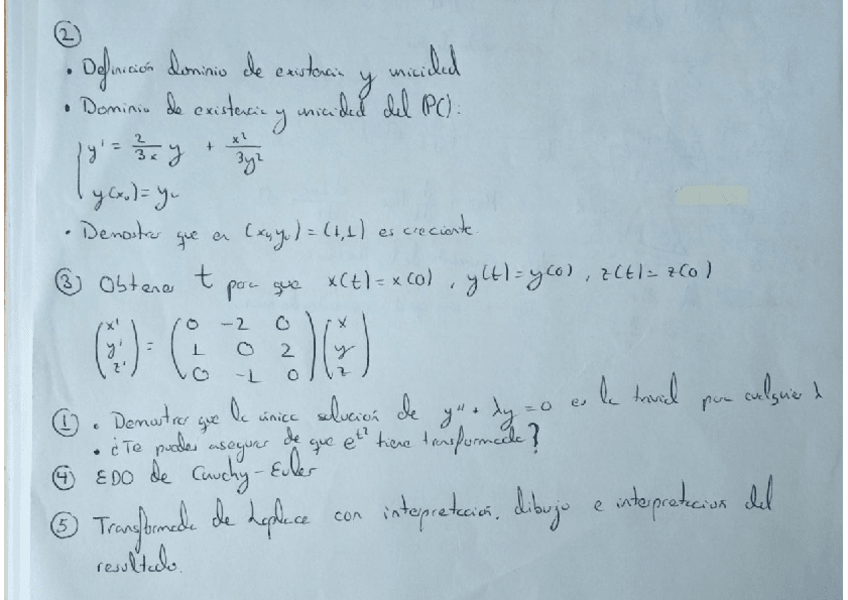 ②
• Definición dominio de existencia y unicidad
• Dominio de existencia y unicidad del (PC):
y' = 2/3x y + x²/3y²
y(x₀) = y₀
• Demostrar que en (x₀,y₀) = (1,1) es creciente.
③ Obtener t para que x(t) = x(0), y(t) = y(0), z(t) = z(0)
(x' y' z') = (0 -2 0 / 1 0 2 / 0 -1 0)(x y z)
① • Demostrar que la única solución de y'' + λy = 0 es la trivial para cualquier λ
• ¿Te puedes asegurar de que e^t² tiene transformada?
④ EDO de Cauchy-Euler
⑤ Transformada de Laplace con interpretación, dibujo e interpretación del
resultado.